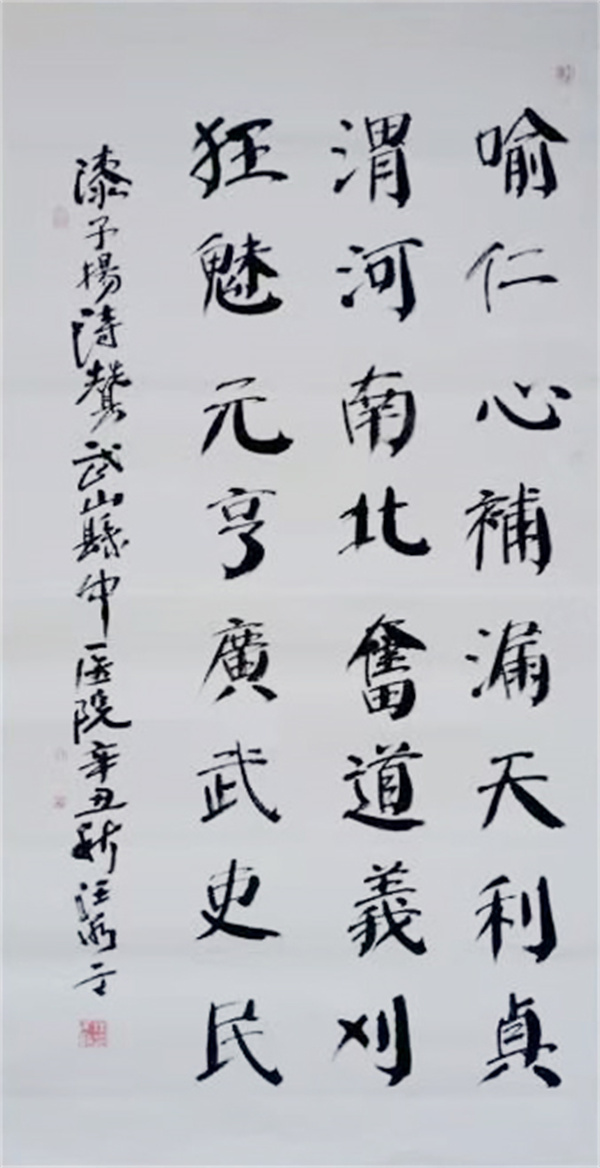 喻仁心補漏天利貞
渭河南北奮道義刈
狂魅元亨廣武吏民
漆子揚濤贊武山縣中医院辛丑秋汪